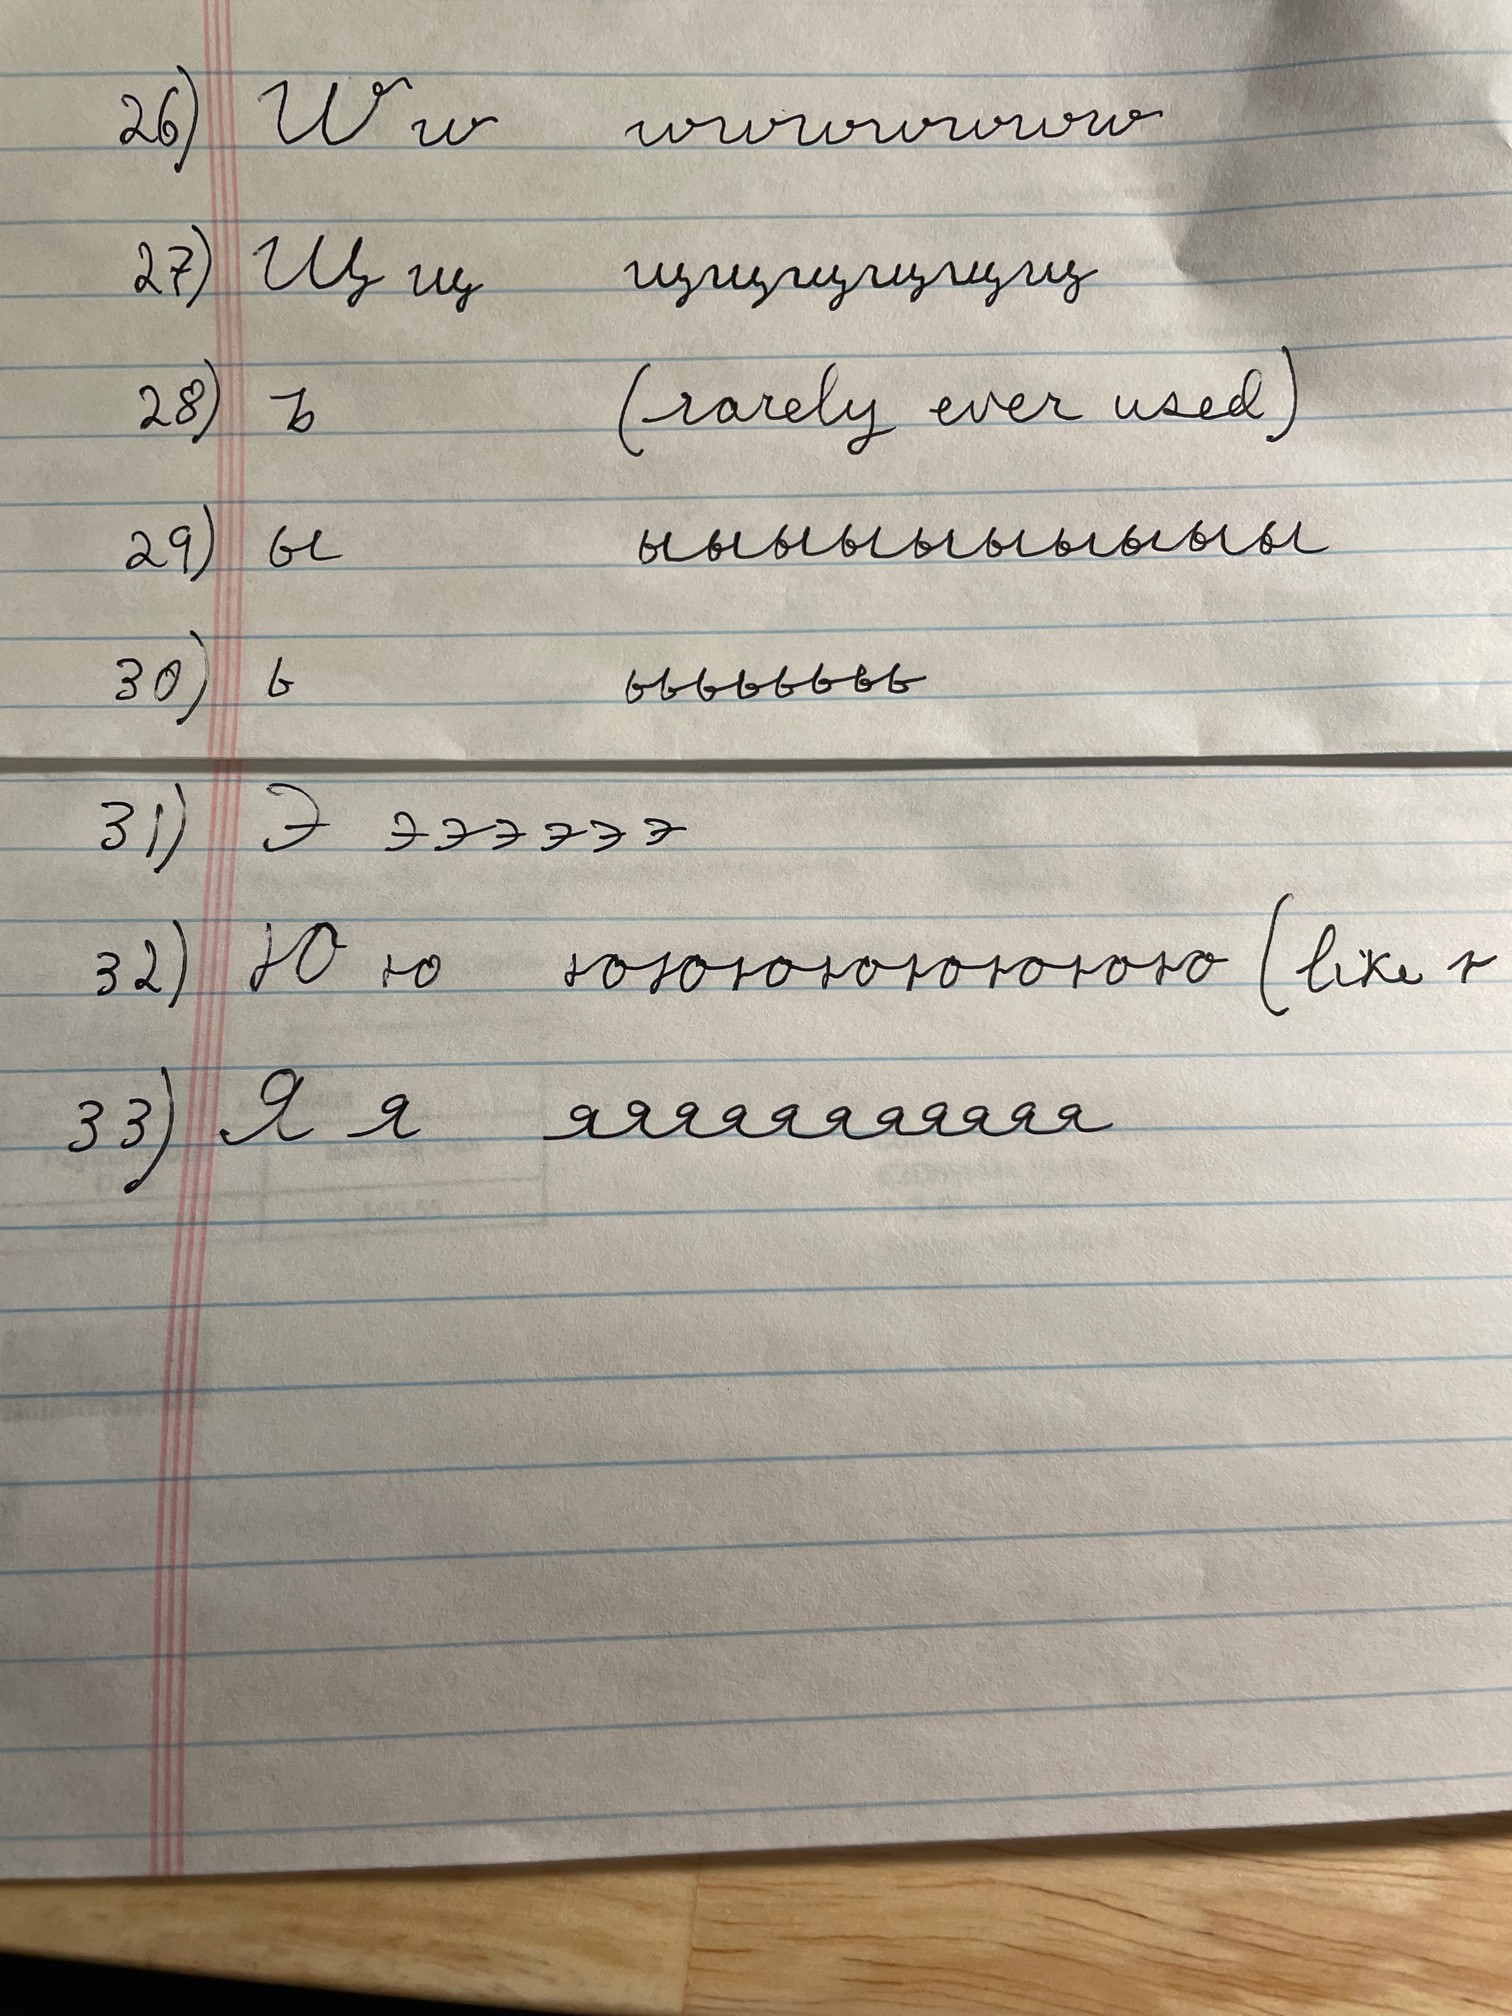 26) Ш ш шшшшшшш
27) Щ щ щщщщщщ
28) ъ (rarely ever used)
29) ы ыыыыыыыыыы
30) ь ьььььььь
31) Э ээээээ
32) Ю ю юююююююю (like
33) Я я яяяяяяяяяяя